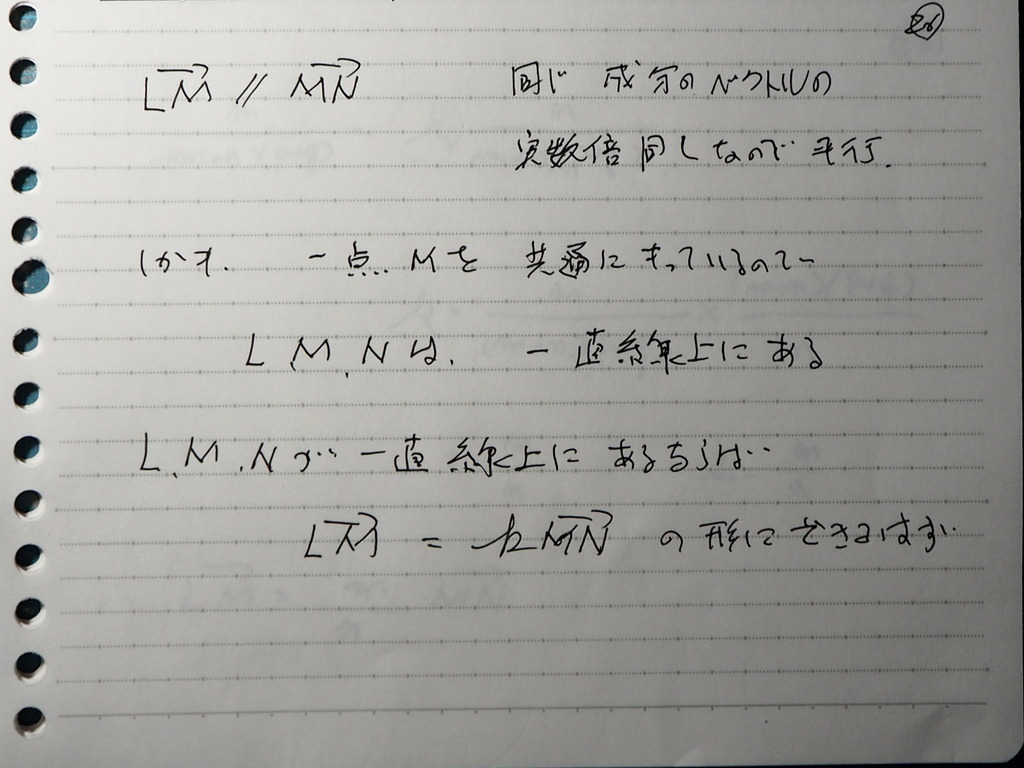 26
LM // MN 同じ 成分のベクトルの
実数倍 同しなので 平行.
しかも. 一点. Mを 共通にもっているので
L, M, Nは. 一直線上にある
L, M, Nが 一直線上に あるならば
LM = kMN の形にできるはず